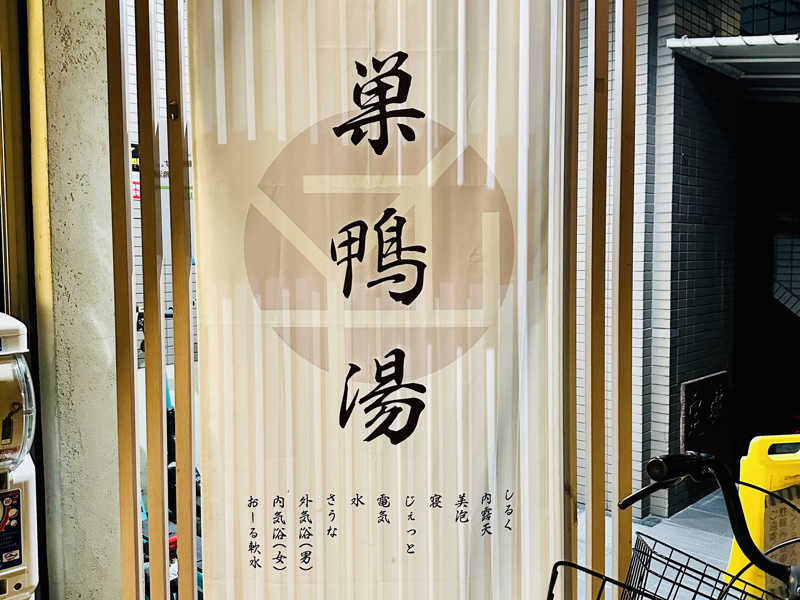 巣鴨湯
しるく
内露天
美泡
寝
じぇっと
電気
水
さうな
外気浴(男)
内気浴(女)
おーる軟水